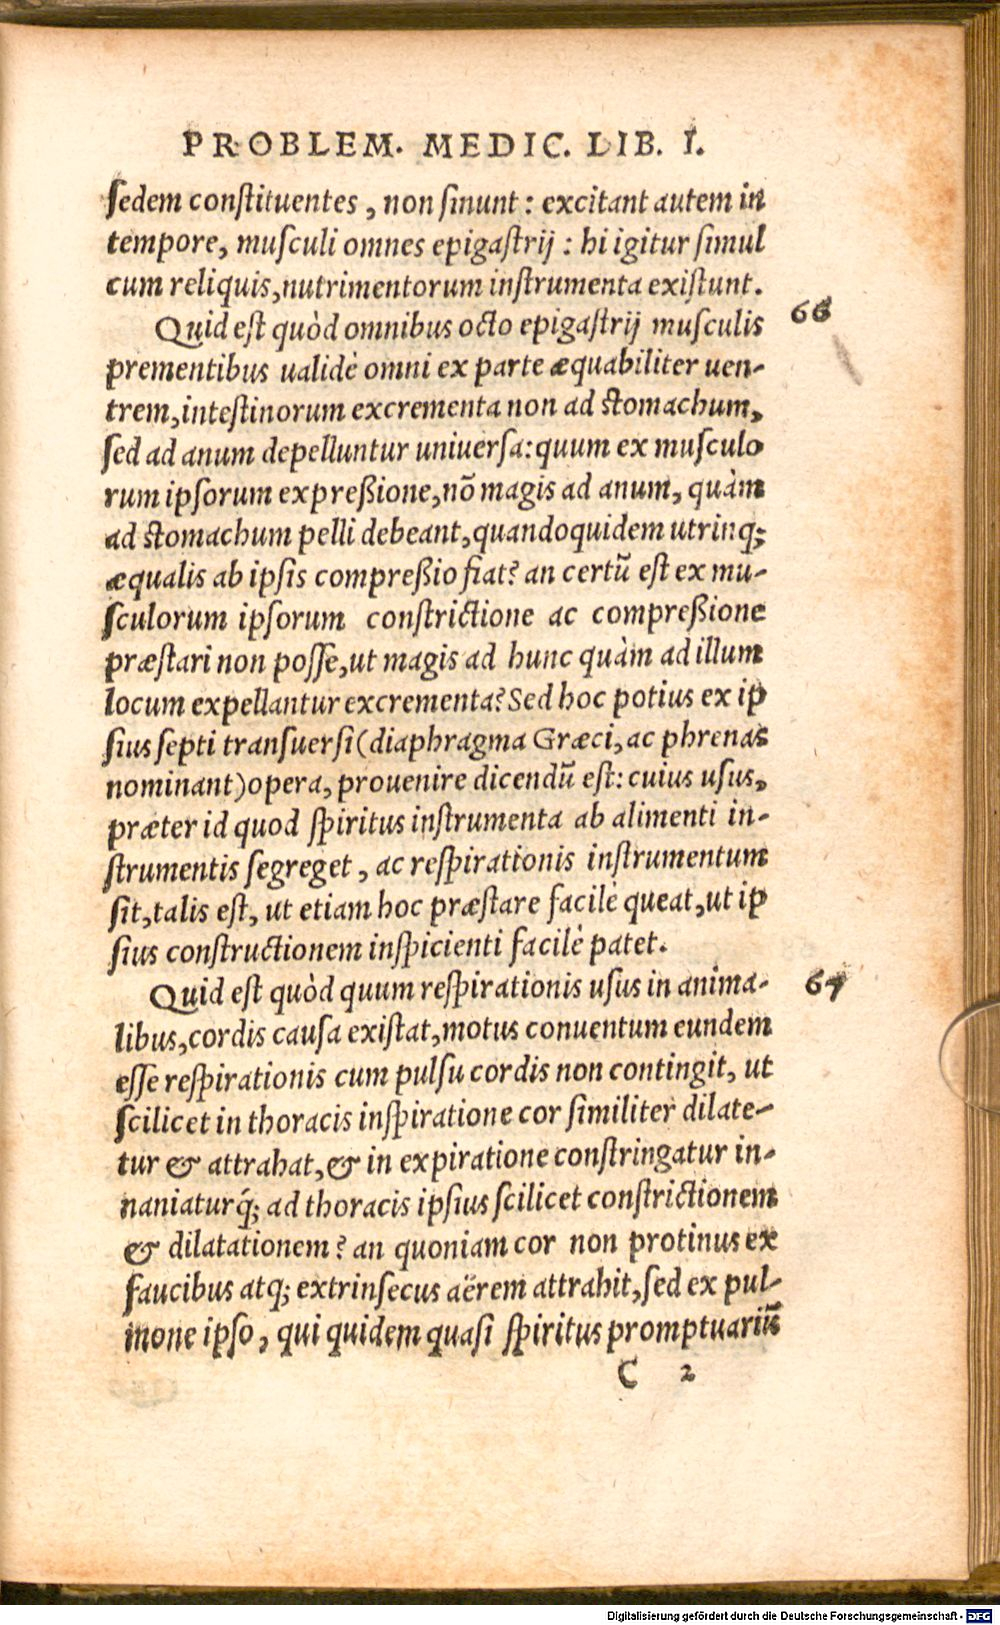 PROBLEM. MEDIC. LIB. I.
sedem constituentes, non sinunt: excitant autem in
tempore, musculi omnes epigastrij: hi igitur simul
cum reliquis, nutrimentorum instrumenta existunt.
66
Quid est quòd omnibus octo epigastrij musculis
prementibus ualidè omni ex parte æquabiliter uen-
trem, intestinorum excrementa non ad stomachum,
sed ad anum depelluntur uniuersa: quum ex musculo
rum ipsorum expreßione, nõ magis ad anum, quàm
ad stomachum pelli debeant, quandoquidem utrinq;
æqualis ab ipsis compreßio fiat? an certũ est ex mu-
sculorum ipsorum constrictione ac compreßione
præstari non posse, ut magis ad hunc quàm ad illum
locum expellantur excrementa? Sed hoc potius ex ip
sius septi transuersi (diaphragma Græci, ac phrenas
nominant) opera, prouenire dicendũ est: cuius usus,
præter id quod spiritus instrumenta ab alimenti in-
strumentis segreget, ac respirationis instrumentum
sit, talis est, ut etiam hoc præstare facilè queat, ut ip
sius constructionem inspicienti facilè patet.
67
Quid est quòd quum respirationis usus in anima-
libus, cordis causa existat, motus conuentum eundem
esse respirationis cum pulsu cordis non contingit, ut
scilicet in thoracis inspiratione cor similiter dilate-
tur & attrahat, & in expiratione constringatur in-
naniaturq́;; ad thoracis ipsius scilicet constrictionem
& dilatationem? an quoniam cor non protinus ex
faucibus atq; extrinsecus aërem attrahit, sed ex pul-
mone ipso, qui quidem quasi spiritus promptuariũ
C 2
Digitalisierung gefördert durch die Deutsche Forschungsgemeinschaft - DFG